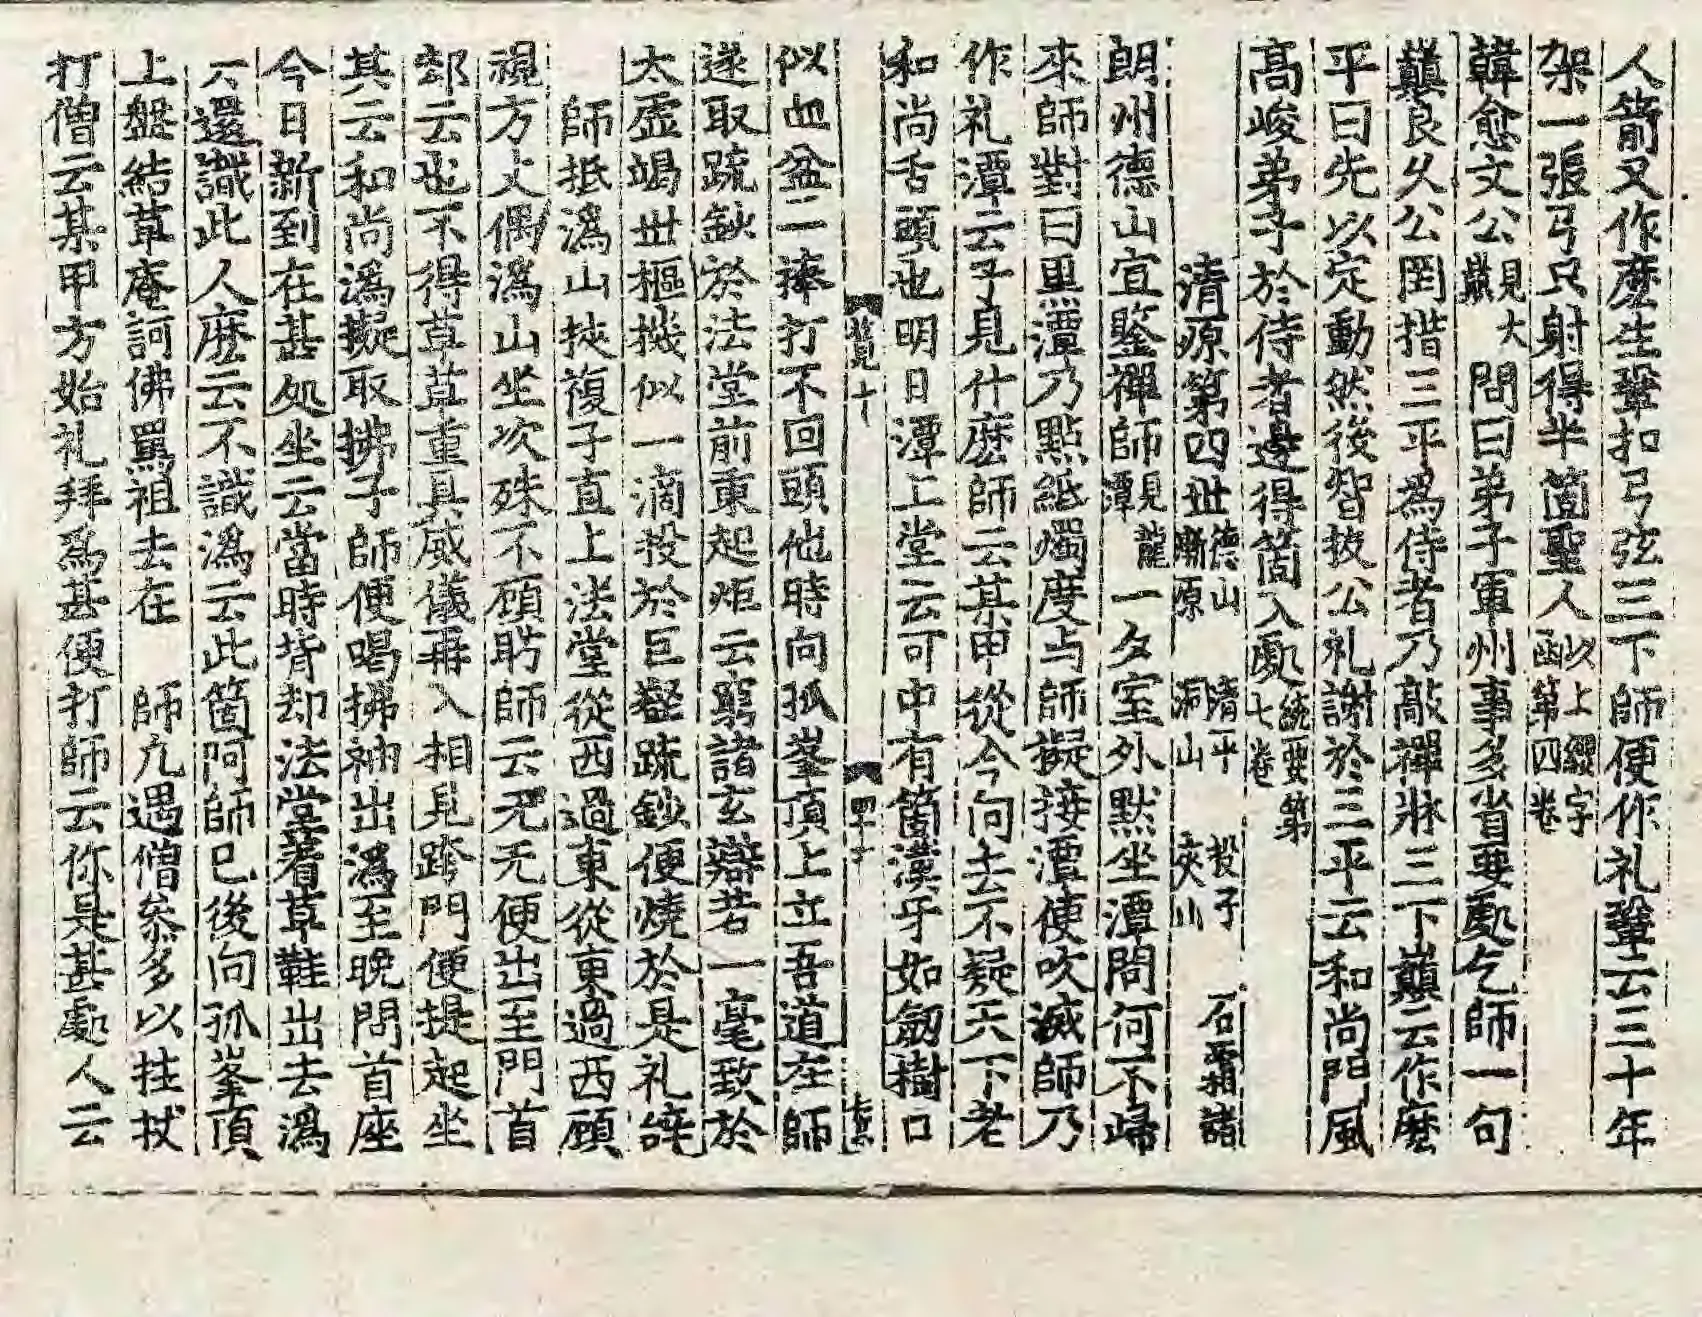 人箭又作麽生鞏扣弓弦三下師便作礼鞏云三十年
架一張弓只射得半箇聖人以上纓字函第四卷
韓愈文公見大顚問曰弟子軍州事多省要處乞師一句
顚良久公罔措三平爲侍者乃敲禪牀三下巓云作麽
平曰先以定動然後智拔公礼謝於三平云和尚門風
高峻弟子於侍者邊得箇入處統要第七卷
清原第四世德山 漸原 清平 洞山 投子 夾山 石霜諸
朗州德山宣鑒禪師見龍潭一夕室外黙坐潭問何不歸
來師對曰黒潭乃點紙燭度与師擬接潭便吹滅師乃
作礼潭云子見什麽師云某甲從今向去不疑天下老
和尚舌頭也明日潭上堂云可中有箇漢牙如劔樹口
似血盆一棒打不回頭他時向孤峯頂上立吾道在師
遂取䟽鈔於法堂前東起炬云窮諸玄辯若一毫致於
太虛竭世樞機似一滴投於巨壑䟽鈔便燒於是礼辞
師抵潙山挾複子直上法堂從西過東從東過西顧
視方丈偶潙山坐次殊不顧眄師云无无便出至門首
却云也不得草草重具威儀再入相見跨門便提起坐
具云和尚潙擬取拂子師便喝拂袖出潙至晚問首座
今日新到在甚処坐云當時背却法堂著草鞋出去潙
云還識此人麽云不識潙云此箇阿師已後向孤峯頂
上盤結草庵訶佛罵祖去在 師凢遇僧叅多以拄杖
打僧云某甲方始礼拜爲甚便打師云你是甚處人云